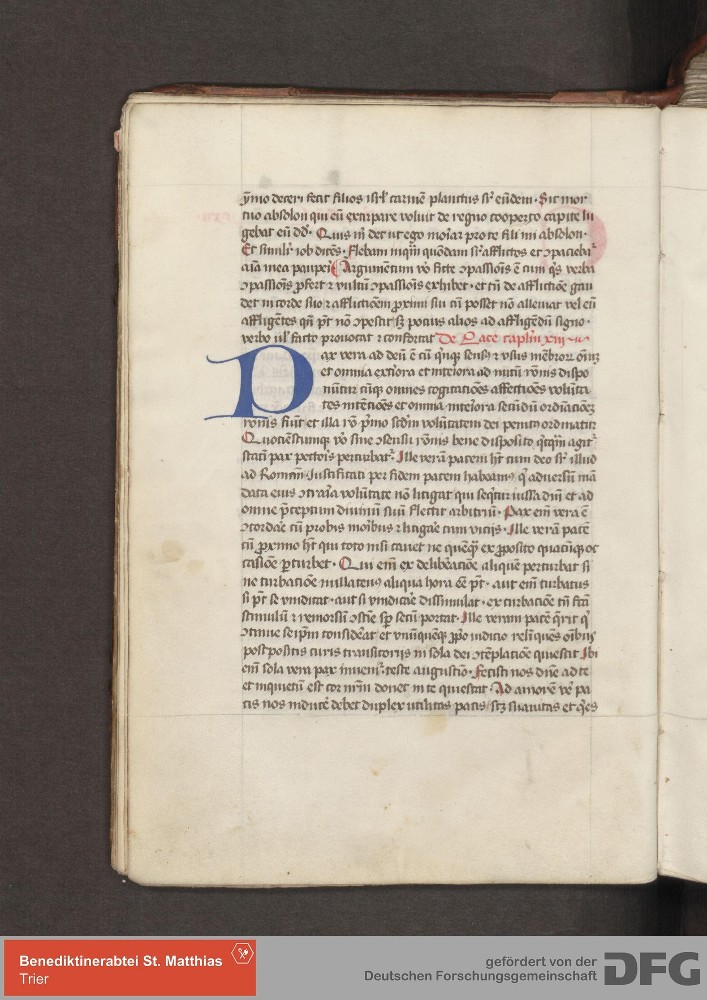 ÿmo deceri fecit filios isrl' carmē planctus sr̄ eūdem · Sic mor
tuo absolon qui eū extirpare voluit de regno cooperto capite lu
gebat eum dd̄ · Quis m̄ det ut ego moīar pro te fili mi absolon ·
Et simīlr iob dicēs · Flebam inqͣm quōdam sr̄ afflictos et ɔpaciebaᷣ
aīa mea paupeī Argumentum v̊o ficte ɔpassiōnis ē cum qͥs verba
ɔpassiōnis ꝓfert ⁊ vultū ɔpassiōnis exhibet · et tn̄ de afflictiōe gau
det in corde suo ⁊ afflictiōem proximi sui cū posset nō alleuiat vel eū
affligētes qn̄ pt̄ nō ɔpescit sꝫ pocius alios ad affligēdū signo ·
verbo ul' facto prouocat ⁊ confortat De Pace caplm̄ xiii
Pax vera ad deū ē cū qͥnqꝫ sensꝰ ⁊ vsus mēbroꝝ oīm
et omnia exteriora et interiora ad nutū rōnis dispo
nūtur cūqꝫ omnes cogitaciōes affectiōes volūta
tes intēciōes et omnia interiora secūdū ordinaciōeꝫ
rōnis fiunt et illa rō pͥmo scd̄m volūtatem dei penitꝰ ordinatur
Quociēscumqꝫ v̊o sine ɔsensu rōnis bene disposito qͥcqͣm agitᷣ
statī pax pectoris perturbatᷣ · Ille verā pacem ht̄ cum deo sr̄ illud
ad Romm̄ · Justificati per fidem pacem habeamꝰ qͥ aduersū mā
data eius ɔtraͣ eiͣ volūtate nō litigat qui seqͥtur iussa dn̄i et ad
omne pͣceptum diuinū suū flectit arbitriū · Pax em̄ vera ē
ɔcordare cū probis moribꝰ ⁊ litigare cum vicijs · Ille verā pacē
cū ꝓximo ht̄ qui toto nisu cauet ne quēqͣꝫ ex ꝓposito quacūqꝫ oc
casiōe ꝑturbet · Qui em̄ ex deliberaciōe aliquē perturbat si
ne turbaciōe nullatenꝰ aliqua hora ēē pt̄ · aut em̄ turbatus
si pt̄ se vindicat · aut si vindictē dissimulat · ex turbaciōe tn̄ fctā
stimulū ⁊ remorsū ɔscīe sp̄ secū portat · Ille veram pacē qͥrit qͥ
ɔtinue seip̄m considerat et vnūquēqꝫ ꝓpͥo iudicio relinquēs oībus
postpositis curis transitorijs in sola dei ɔtēplaciōe quiescit Ibi
em̄ sola vera pax inuenitᷣ · teste augustīo · Fecisti nos dn̄e ad te
et inquietū est cor nrm̄ donec in te quiescat · Ad amorē v̊e pa
cis nos inducē debet duplex vtilitas pacis / scꝫ suauitas et qͥes
Benediktinerabtei St. Matthias
Trier
gefördert von der
Deutschen Forschungsgemeinschaft
DFG